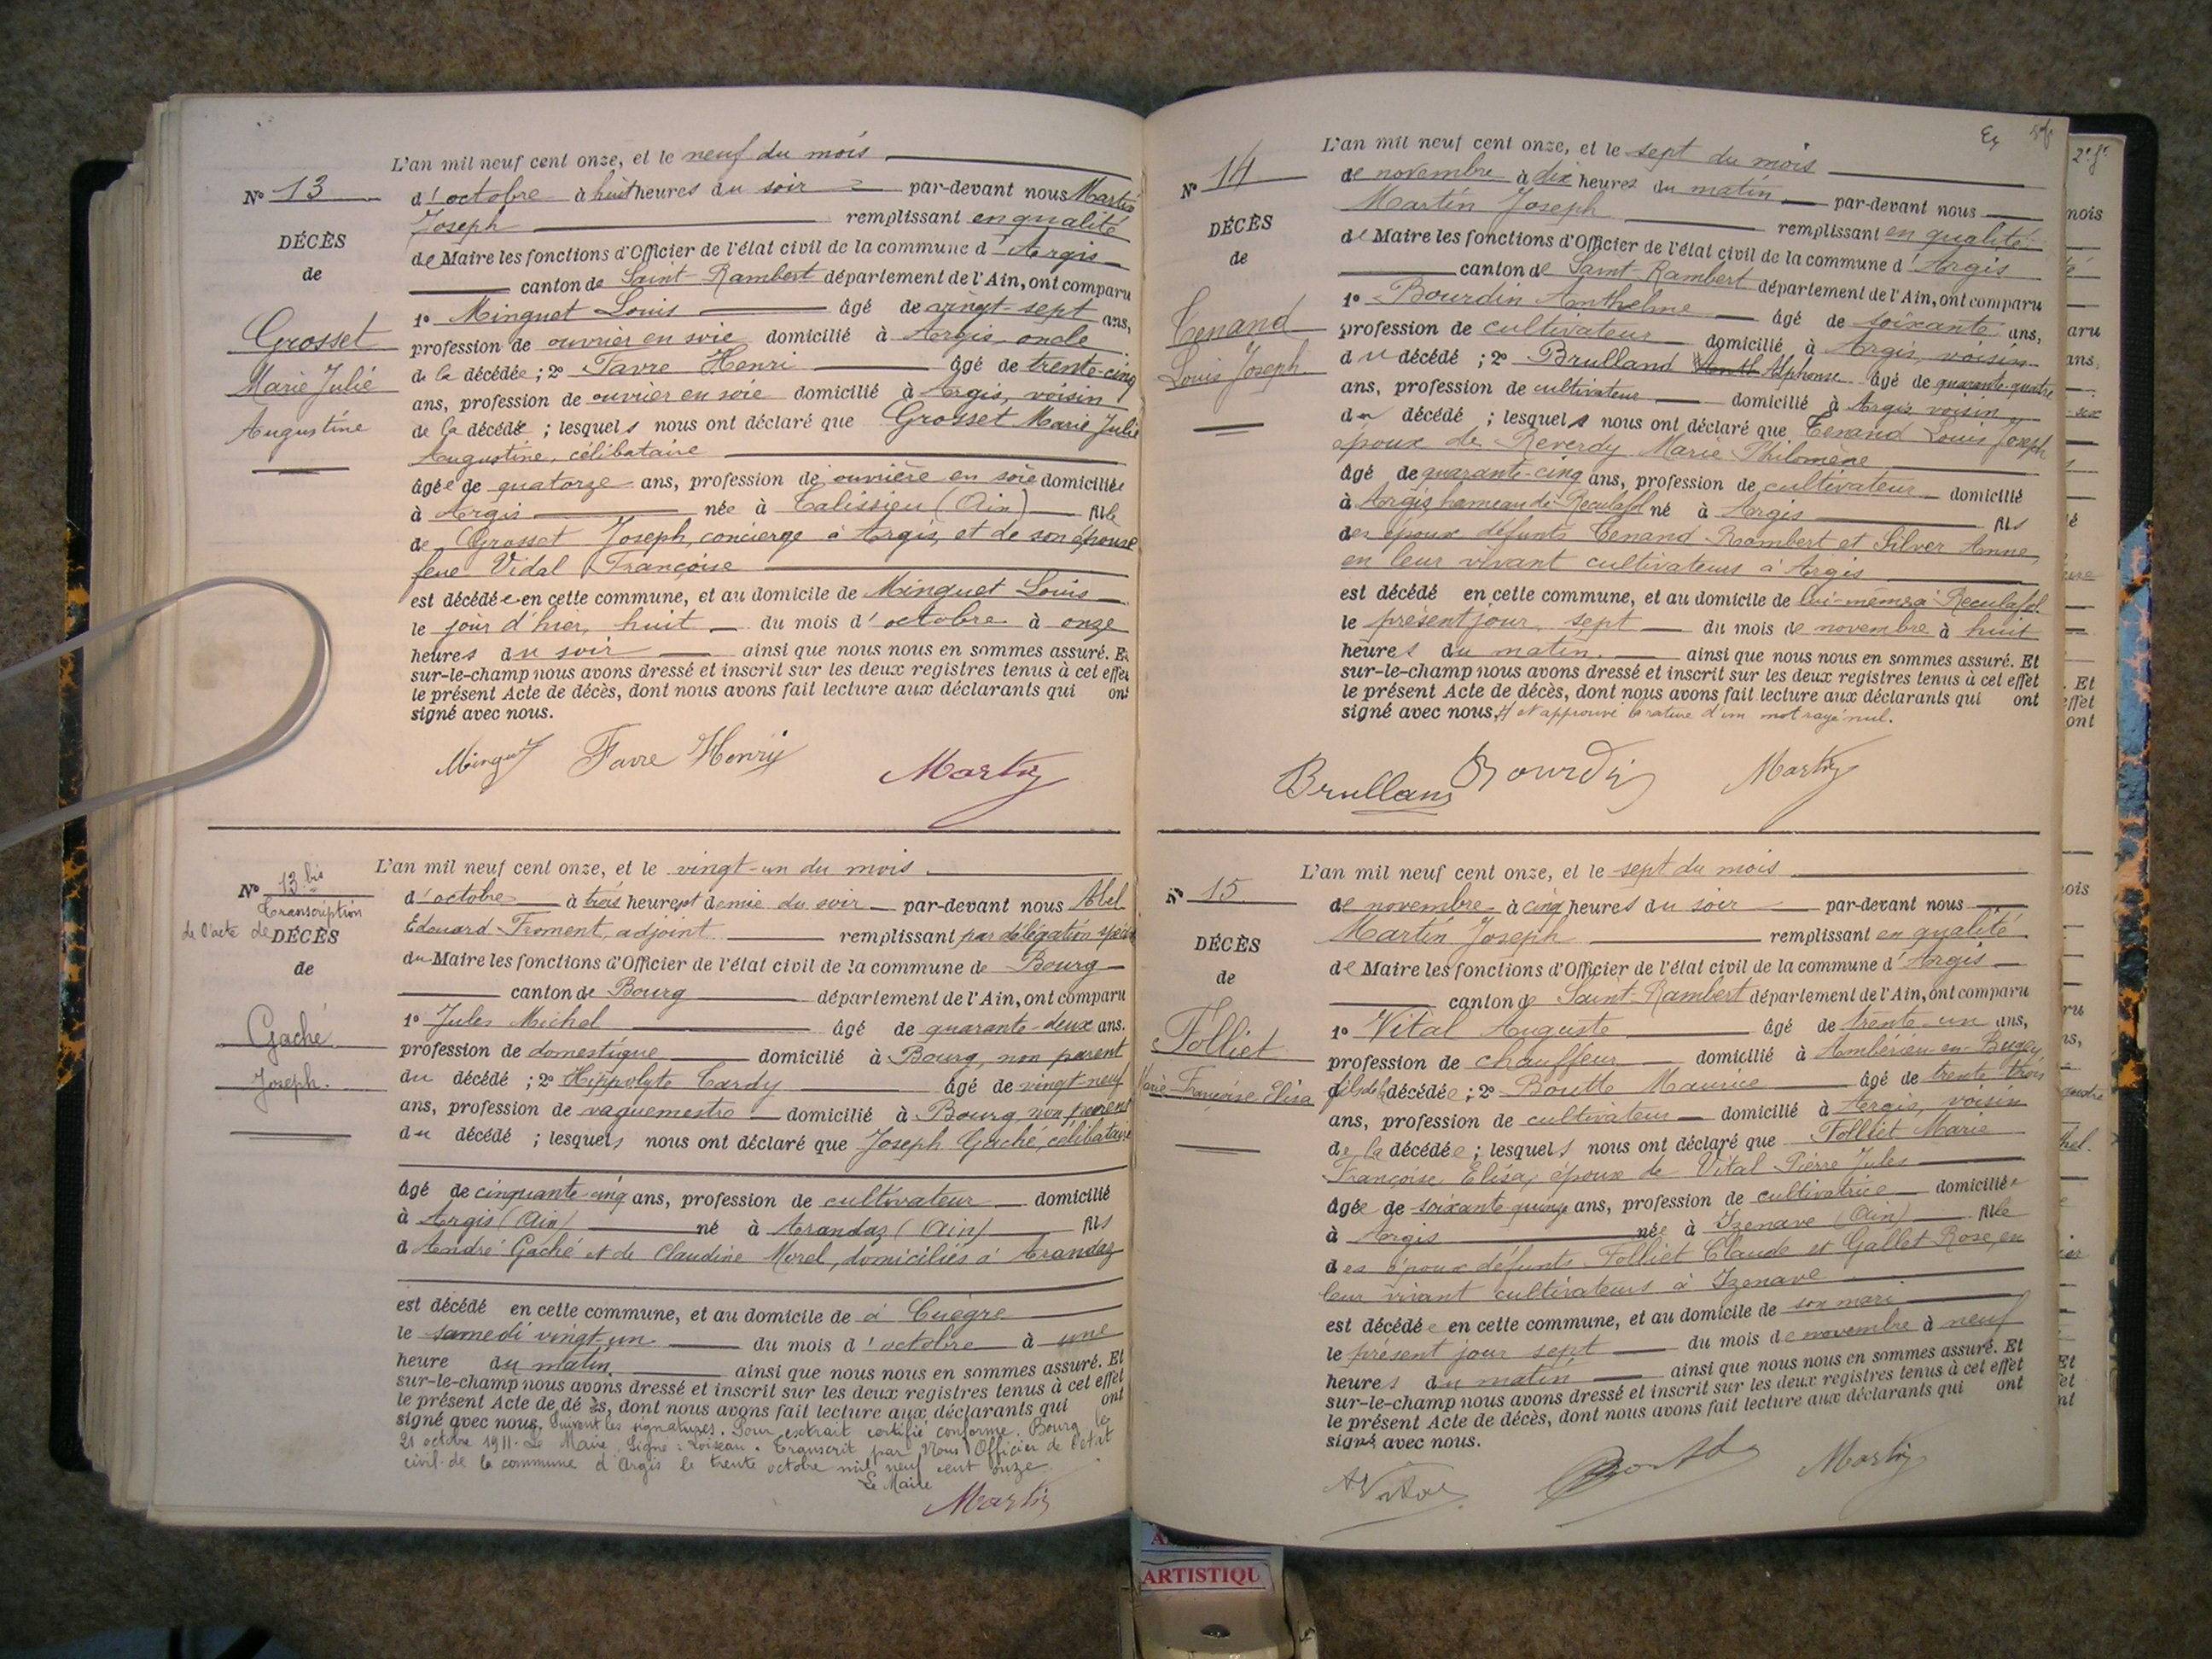 L'an mil neuf cent onze, et le neuf du mois
N° 13
d'octobre à huit heures du soir par-devant nous Martin
Joseph remplissant en qualité
DÉCÈS
de Maire les fonctions d'Officier de l'état civil de la commune d'Argis
de
canton de Saint-Rambert département de l'Ain, ont comparu
1° Minguet Louis âgé de vingt-sept ans,
Grosset
profession de ouvrier en soie domicilié à Argis, oncle
Marie Julie
de la décédée ; 2° Favre Henri âgé de trente-cinq
ans, profession de ouvrier en soie domicilié à Argis, voisin
Augustine
de la décédée ; lesquels nous ont déclaré que Grosset Marie Julie
Augustine, célibataire
âgée de quatorze ans, profession de ouvrière en soie domiciliée
à Argis née à Talissieu (Ain) fille
de Grosset Joseph, concierge à Argis, et de son épouse
feue Vidal Françoise
est décédée en cette commune, et au domicile de Minguet Louis
le jour d'hier, huit du mois d'octobre à onze
heures du soir ainsi que nous nous en sommes assuré. Et
sur-le-champ nous avons dressé et inscrit sur les deux registres tenus à cet effet
le présent Acte de décès, dont nous avons fait lecture aux déclarants qui ont
signé avec nous.
Minguet Favre Henri Martin
L'an mil neuf cent onze, et le vingt-un du mois
N° 13 bis
Transcription
de l'acte de DÉCÈS
de
d'octobre à trois heures et demie du soir par-devant nous Abel
Edouard Froment, adjoint remplissant par délégation spéciale
du Maire les fonctions d'Officier de l'état civil de la commune de Bourg
canton de Bourg département de l'Ain, ont comparu
1° Jules Michel âgé de quarante-deux ans.
Gaché
profession de domestique domicilié à Bourg, non parent
Joseph.
du décédé ; 2° Hippolyte Cardy âgé de vingt-neuf
ans, profession de vaguemestre domicilié à Bourg, non parent
du décédé ; lesquels nous ont déclaré que Joseph Gaché, célibataire
âgé de cinquante cinq ans, profession de cultivateur domicilié
à Argis (Ain) né à Arandaz (Ain) fils
d'André Gaché et de Claudine Morel, domiciliés à Arandaz
est décédé en cette commune, et au domicile de à Cuègre
le samedi vingt-un du mois d'octobre à une
heure du matin ainsi que nous nous en sommes assuré. Et
sur-le-champ nous avons dressé et inscrit sur les deux registres tenus à cet effet
le présent Acte de décès, dont nous avons fait lecture aux déclarants qui ont
signé avec nous. Suivent les signatures. Pour extrait certifié conforme. Bourg le
21 octobre 1911. Le Maire, Signé : Loiseau. Transcrit par Nous Officier de l'état
civil de la commune d'Argis le trente octobre mil neuf cent onze
Le Maire
Martin
L'an mil neuf cent onze, et le sept du mois
N° 14
de novembre à dix heures du matin par-devant nous
Martin Joseph remplissant en qualité
DÉCÈS
de
de Maire les fonctions d'Officier de l'état civil de la commune d'Argis
canton de Saint-Rambert département de l'Ain, ont comparu
1° Bourdin Anthelme âgé de soixante ans,
Tenand
profession de cultivateur domicilié à Argis, voisin
Louis Joseph
du décédé ; 2° Brulland Alphonse âgé de quarante-quatre
ans, profession de cultivateur domicilié à Argis, voisin
du décédé ; lesquels nous ont déclaré que Tenand Louis Joseph
époux de Reverdy Marie Philomène
âgé de quarante-cinq ans, profession de cultivateur domicilié
à Argis, hameau de Reculafol né à Argis fils
des époux défunts Tenand Rambert et Silver Anne,
en leur vivant cultivateurs à Argis
est décédé en cette commune, et au domicile de lui-même à Reculafol
le présent jour sept du mois de novembre à huit
heures du matin. ainsi que nous nous en sommes assuré. Et
sur-le-champ nous avons dressé et inscrit sur les deux registres tenus à cet effet
le présent Acte de décès, dont nous avons fait lecture aux déclarants qui ont
signé avec nous, et approuvé la rature d'un mot rayé nul.
Brulland Bourdin Martin
L'an mil neuf cent onze, et le sept du mois
N° 15
de novembre à cinq heures du soir par-devant nous
Martin Joseph remplissant en qualité
DÉCÈS
de
de Maire les fonctions d'Officier de l'état civil de la commune d'Argis
canton de Saint-Rambert département de l'Ain, ont comparu
1° Vital Auguste âgé de trente-un ans,
Folliet
profession de chauffeur domicilié à Ambérieu-en-Bugey
Marie-Françoise Elisa
fils de la décédée ; 2° Boutte Maurice âgé de trente trois
ans, profession de cultivateur domicilié à Argis, voisin
de la décédée ; lesquels nous ont déclaré que Folliet Marie
Françoise Elisa, époux de Vital Pierre Jules
âgée de soixante quinze ans, profession de cultivatrice domiciliée
à Argis née à Izenave (Ain) fille
des époux défunts Folliet Claude et Gallet Rose, en
leur vivant cultivateurs à Izenave
est décédée en cette commune, et au domicile de son mari
le présent jour sept du mois de novembre à neuf
heures du matin ainsi que nous nous en sommes assuré. Et
sur-le-champ nous avons dressé et inscrit sur les deux registres tenus à cet effet
le présent Acte de décès, dont nous avons fait lecture aux déclarants qui ont
signé avec nous.
A Vital Martin
ARTISTIQU